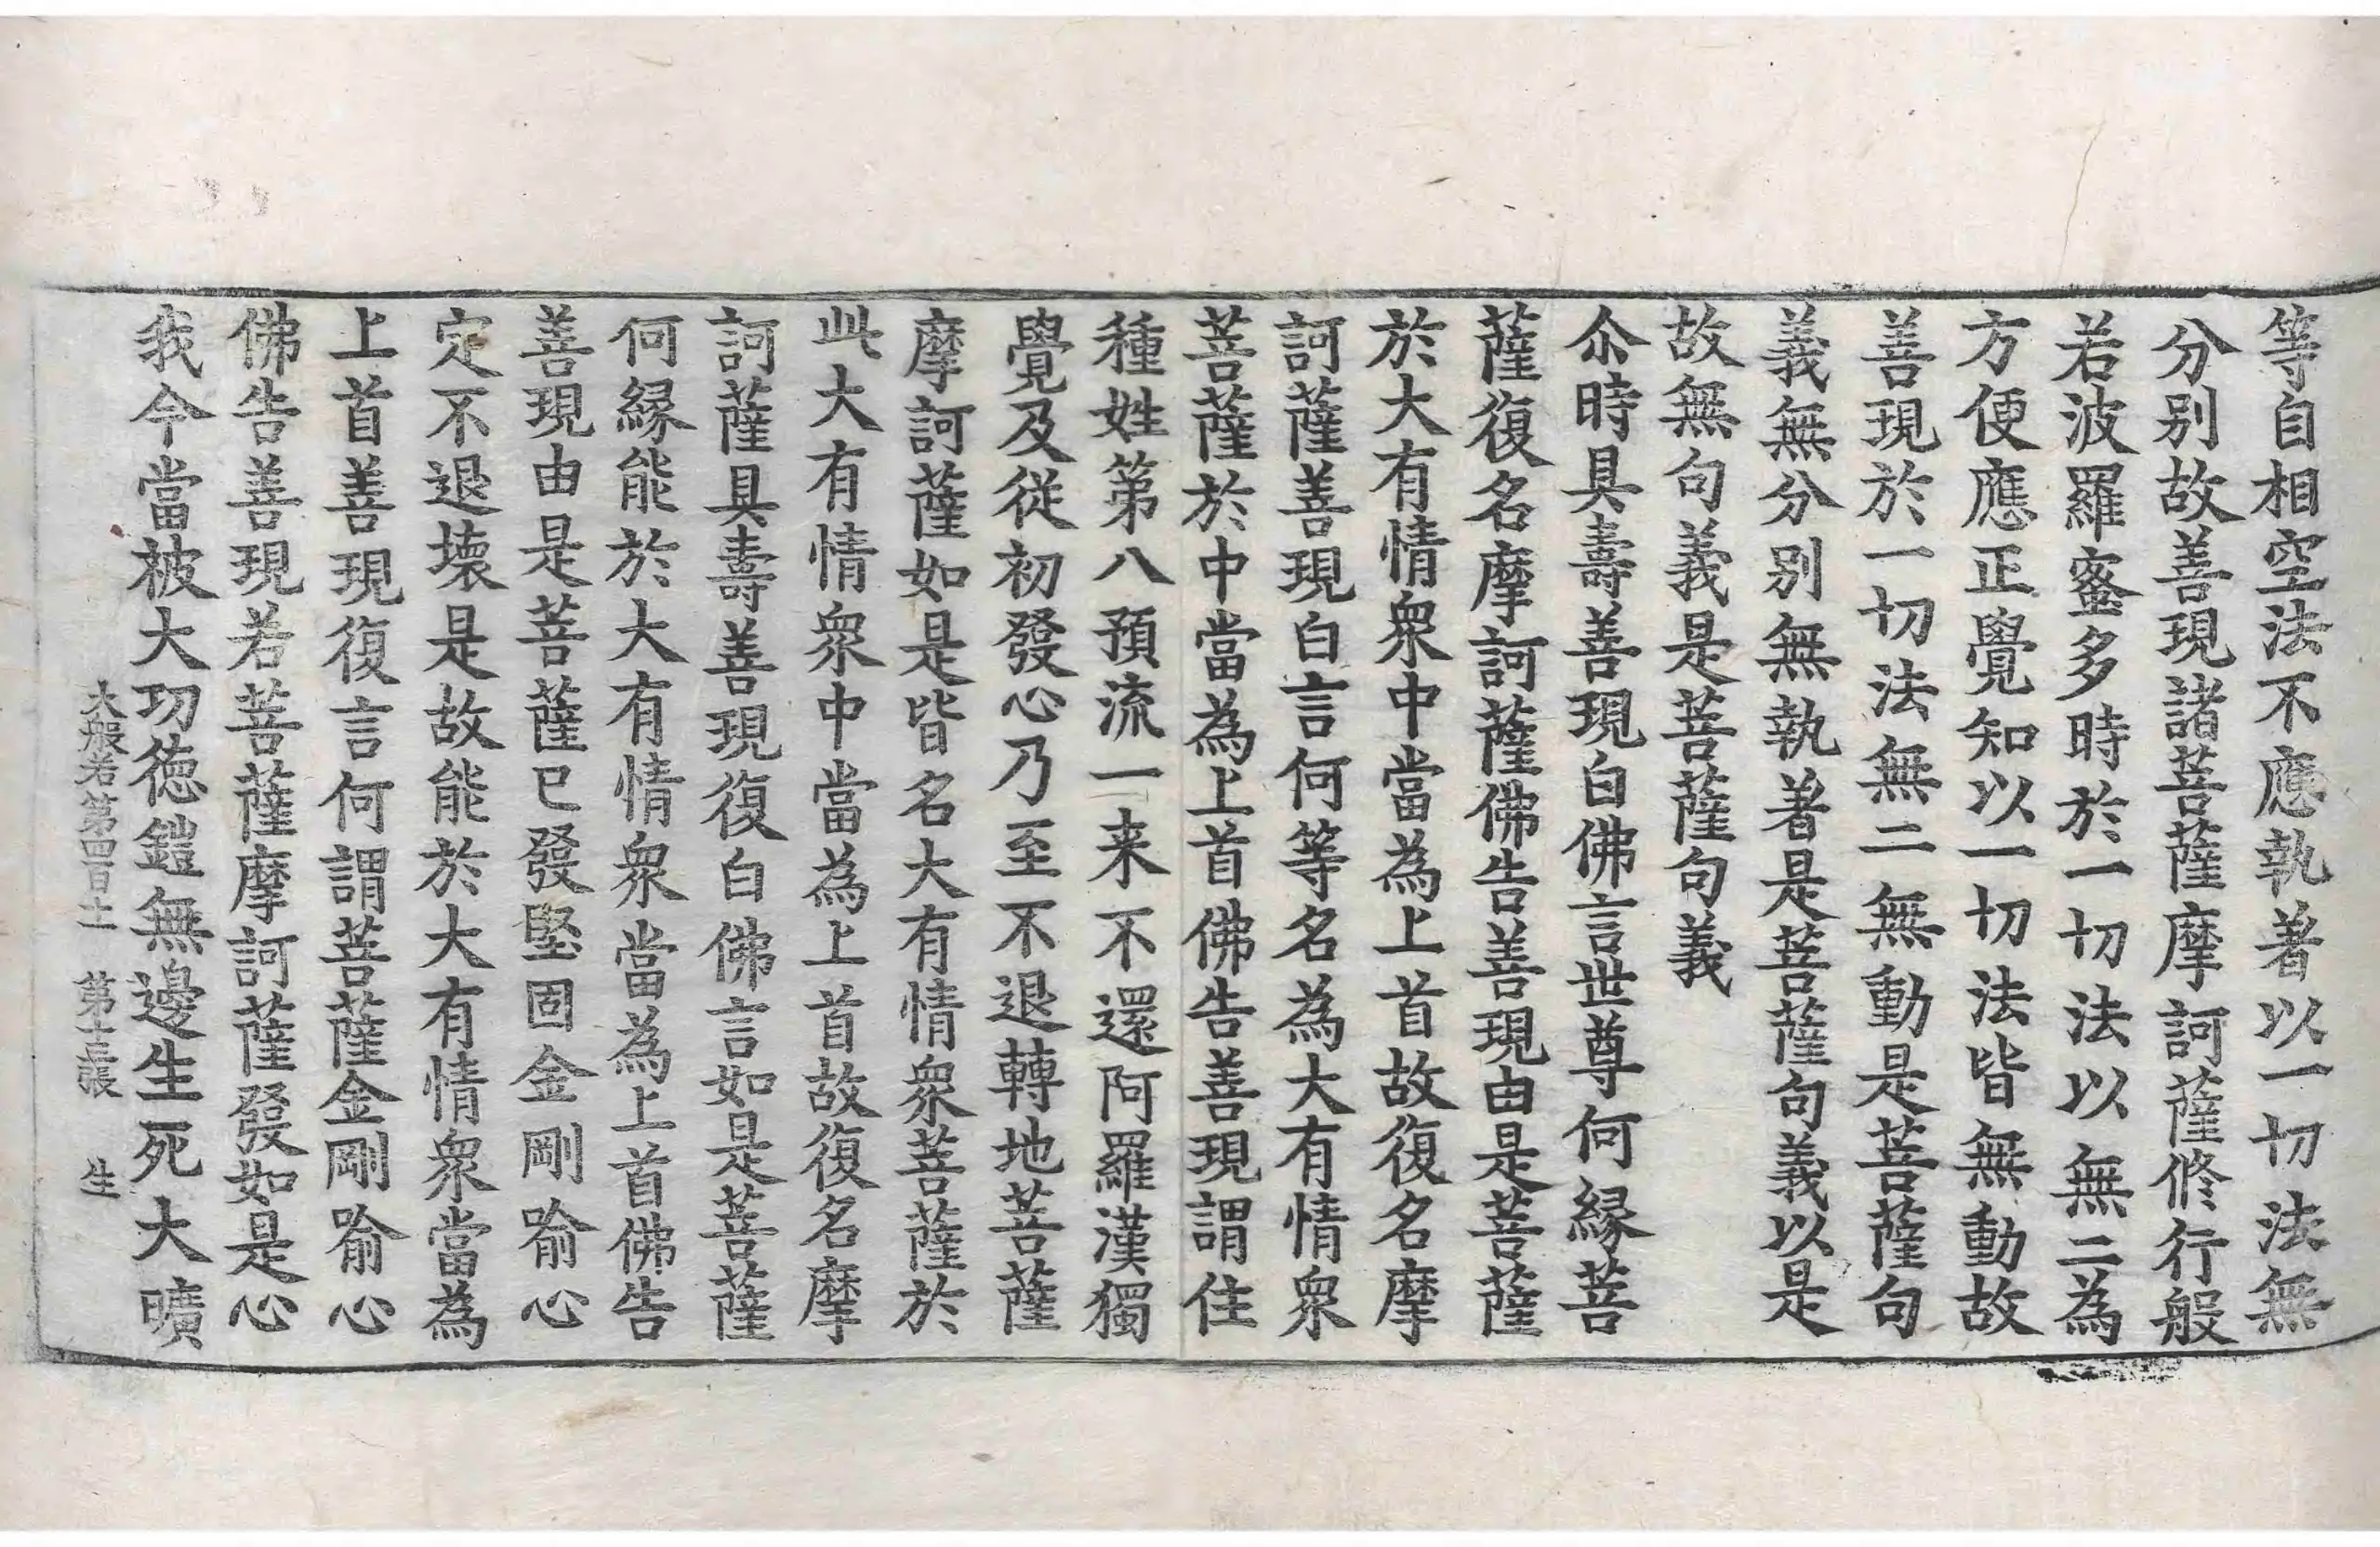 等自相空法不應執著以一切法無
分别故善現諸菩薩摩訶薩修行般
若波羅蜜多時於一切法以無二為
方便應正覺知以一切法皆無動故
善現於一切法無二無動是菩薩句
義無分別無執著是菩薩句義以是
故無句義是菩薩句義
尒時具壽善現白佛言世尊何緣菩
薩復名摩訶薩佛告善現由是菩薩
於大有情衆中當為上首故復名摩
訶薩善現白言何等名為大有情衆
菩薩於中當為上首佛告善現謂住
種姓第八預流一来不還阿羅漢獨
覺及從初發心乃至不退轉地菩薩
摩訶薩如是皆名大有情衆菩薩於
此大有情衆中當為上首故復名摩
訶薩具壽善現復白佛言如是菩薩
何緣能於大有情衆當為上首佛告
善現由是菩薩已發堅固金剛喻心
定不退壞是故能於大有情衆當為
上首善現復言何謂菩薩金剛喻心
佛告善現若菩薩摩訶薩發如是心
我今當被大功德鎧無邊生死大曠
大般若第四百十一 第十三張 生